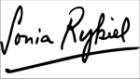 Sonia Rykiel